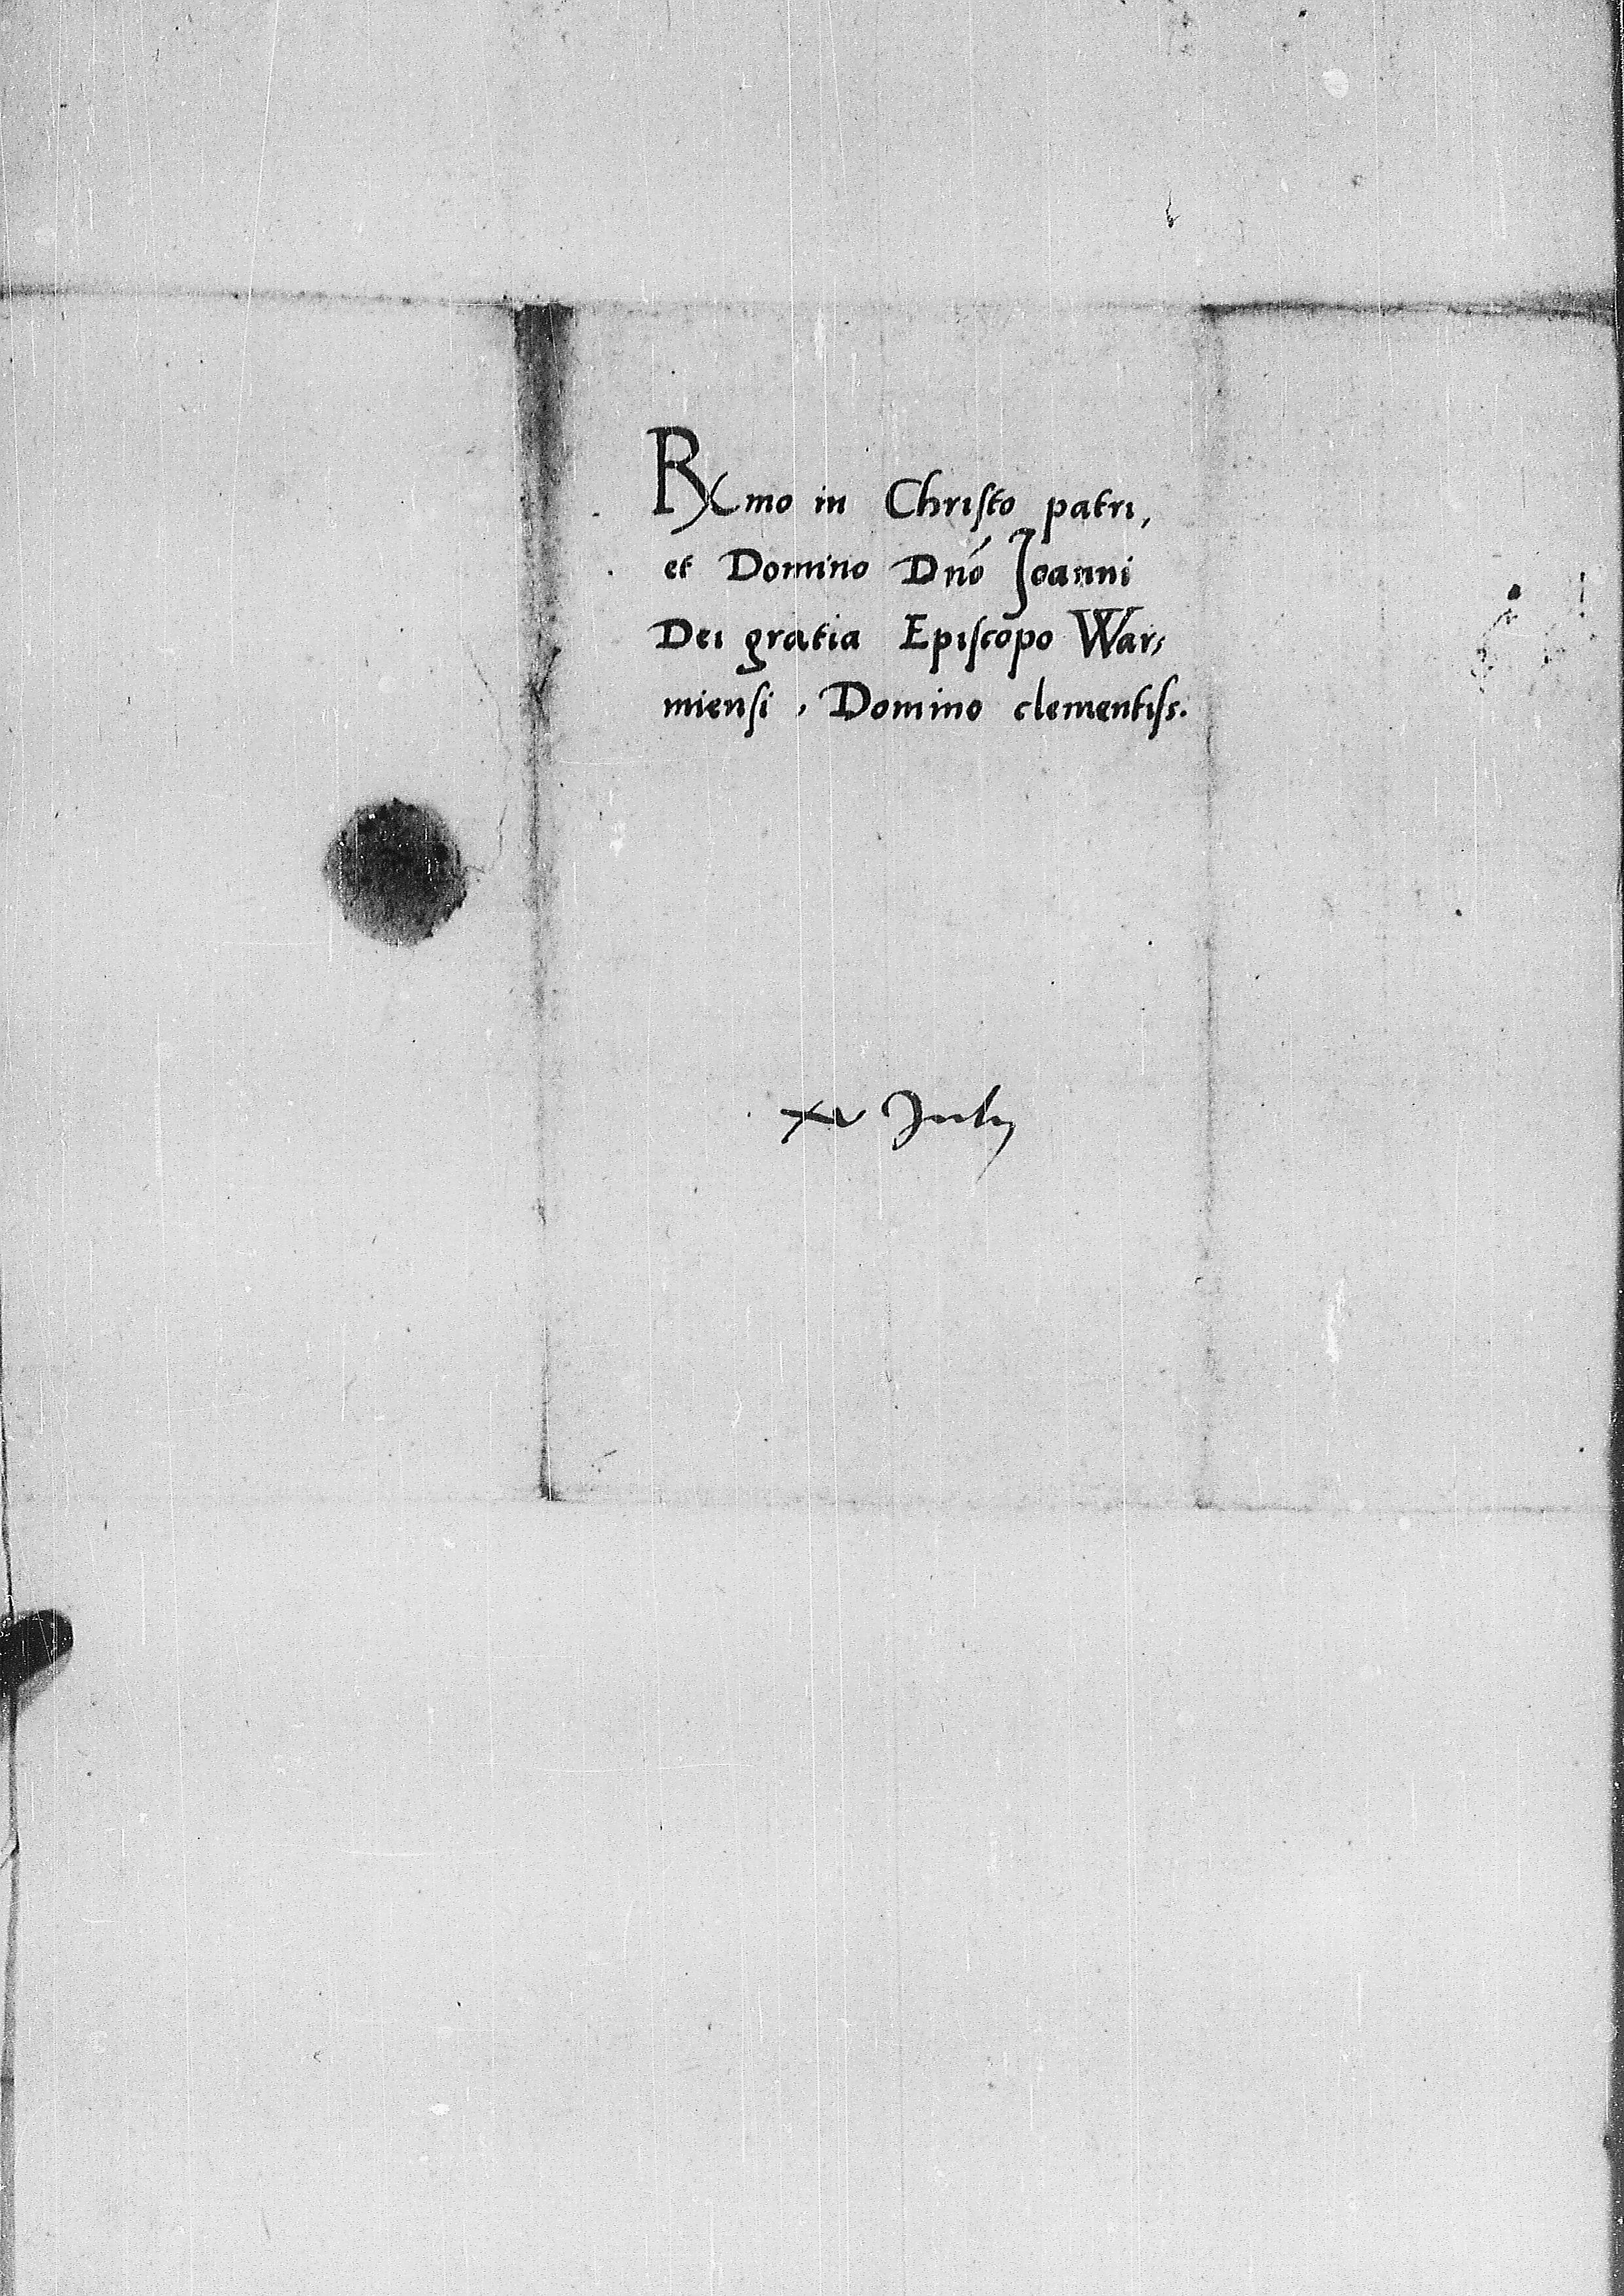 Rmo in Christo patri,
et Domino Dnō Joanni
Dei gratia Episcopo War-
miensi, Domino clementiss.
xv July